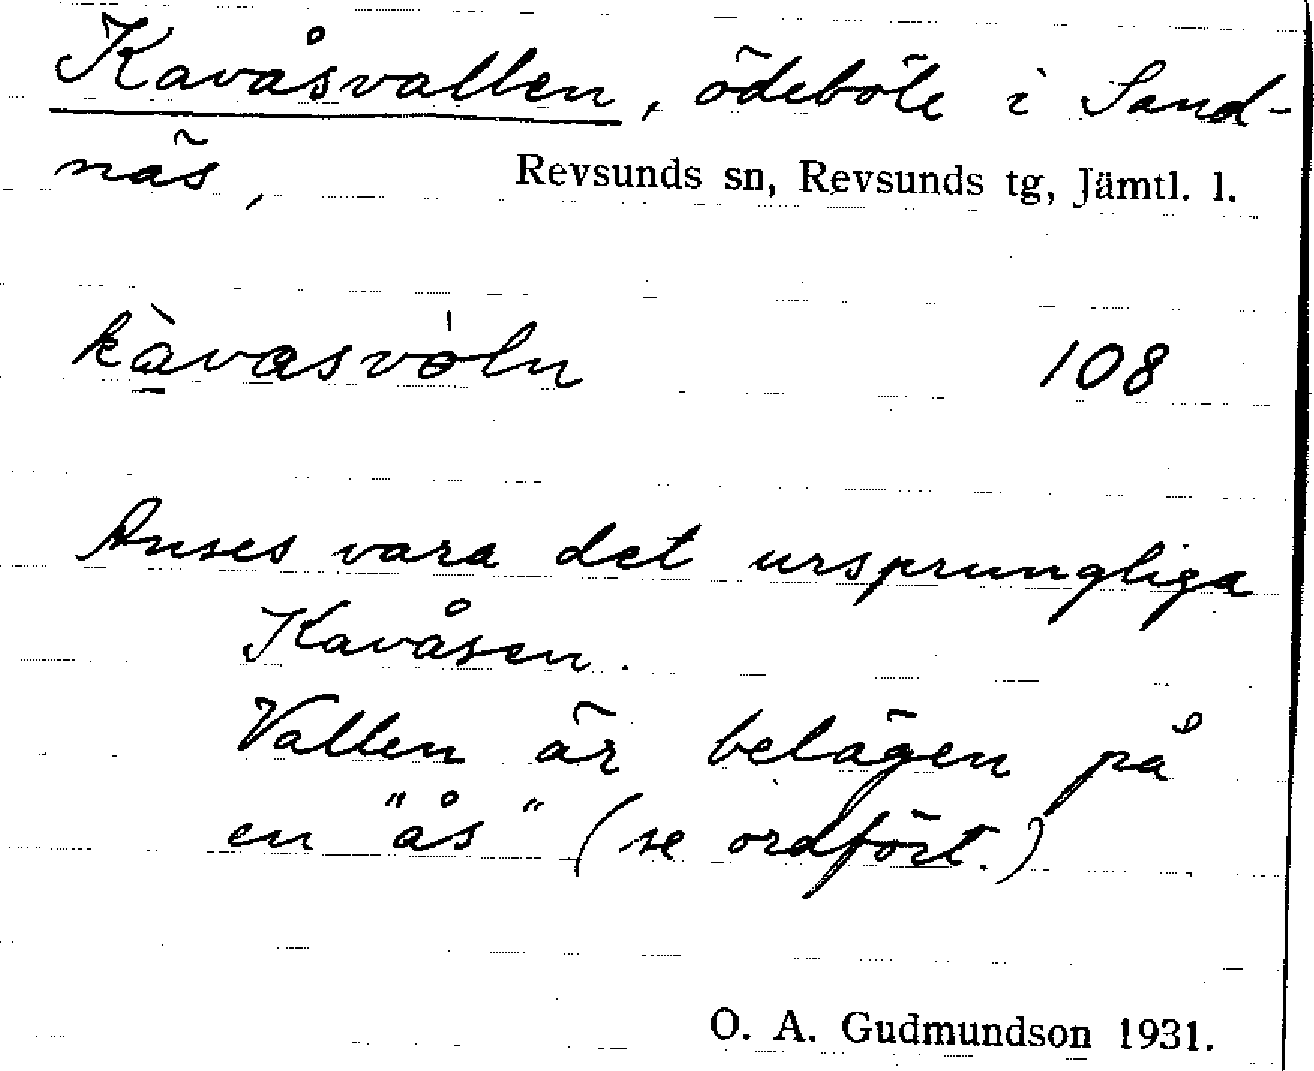 Kavåsvallen, ödeböle i Sand-
näs, Revsunds sn, Revsunds tg, Jämtl. l.
kàvasvóln 108
Anses vara det ursprungliga
Kavåsen.
Vallen är belägen på
en "ås" (se ordfört.)
O. A. Gudmundson 1931.